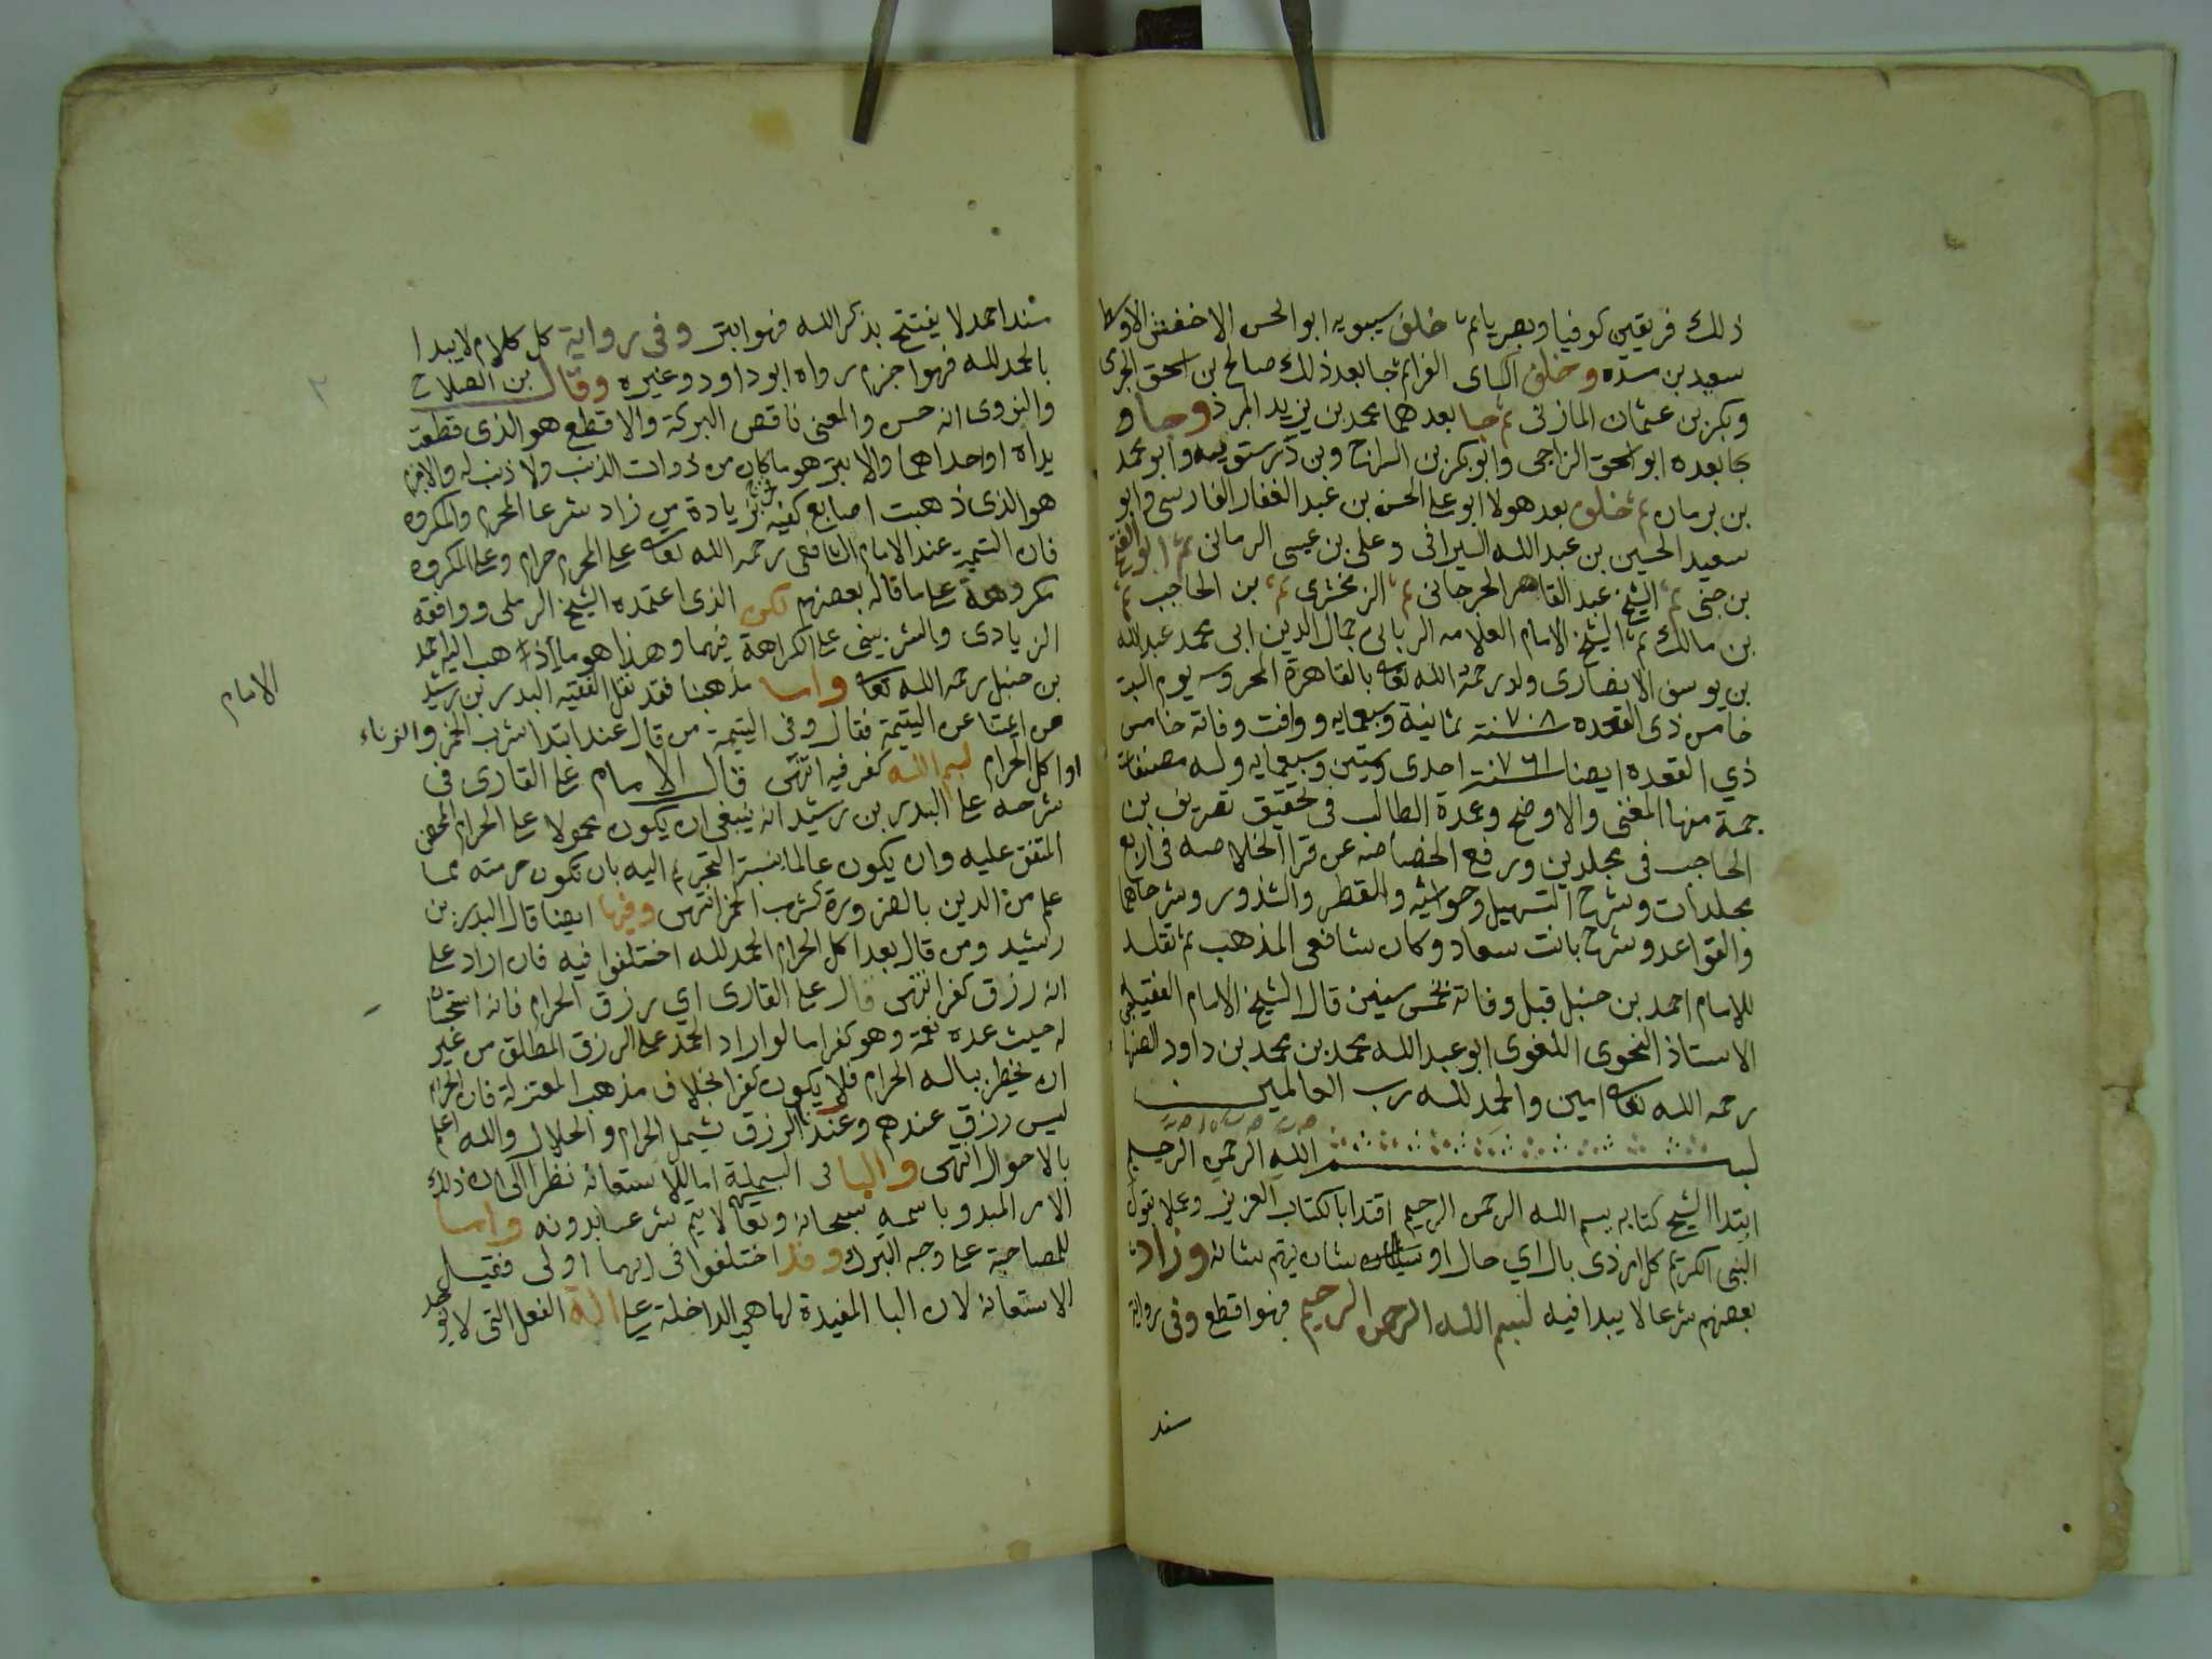 ذلك فريقين كوفيا وبصريا ثم خلف سيبويه ابو الحسن الاخفش الاوسط
سعيد بن مسعدة وخلف الكساى الفرا ثم جا بعد ذلك صالح بن اسحق الجرمى
وبكر بن عثمان المازنى ثم جا بعدهما محمد بن يزيد المبرد وجا
بعده ابو اسحق الزجاجى وابو بكر بن السراج وبن درستويه وابو محمد
بن برمان ثم خلف بعد هولا ابو على الحسن بن عبد الغفار الفارسى وابو
سعيد الحسين بن عبد الله السيرافى وعلى بن عيسى الرمانى ثم ابو الفتح
بن جنى ثم الشيخ عبد القاهر الجرجانى ثم الزمخشرى ثم بن الحاجب ثم
بن مالك ثم الشيخ الامام العلامه الربانى جمال الدين ابى محمد عبد الله
بن يوسف الانصارى ولد رحمة الله تعا بالقاهرة المحروسه يوم السبت
خامس ذى القعده سنة ٧٠٨ ثمانية وسبعمايه ووافت وفاته خامس
ذي القعده ايضا سنة ٧٦١ احدى وستين وسبعمايه وله مصنفات
جمة منها المغنى والاوضح وعمدة الطالب فى تحقيق تصريف بن
الحاجب فى مجلدين ورفع الخصاصه عن قرا الخلاصه فى اربع
مجلدات وشرح التسهيل وحواشيه والقطر والشذور وشرحاهما
والقواعد وشرح بانت سعاد وكان شافعى المذهب ثم تقلد
للامام احمد بن حنبل قبل وفاته بخمس سنين قال الشيخ الامام الفقيه
الاستاذ النحوى اللغوى ابو عبد الله محمد بن محمد بن داود الصنها
رحمه الله تعا امين والحمد لله رب العالمين
بسم الله الرحمن الرحيم
ابتدا الشيخ كتابه ببسم الله الرحمن الرحيم اقتدا بالكتاب العزيز وعملا بقول
النبى الكريم كل امر ذى بال اي حال او شان يهتم بشانه وزاد
بعضهم شرعا لا يبدا فيه ببسم الله الرحمن الرحيم فهو اقطع وفى رواية
سند
سند احمد لا يفتتح بذكر الله فهو ابتر وفى رواية كل كلام لا يبدا
بالحمد لله فهو اجزم رواه ابو داود وغيره وقال بن الصلاح
والنووى انه حسن والمعنى ناقص البركة والاقطع هو الذى قطعت
يداه او احداهما والابتر هو ما كان من ذوات الذنب ولا ذنب له والاجزم
هو الذى ذهبت اصابع كفيه زيادة من زاد شرعا المحرم والمكروه
فان التسمية عند الامام الشافعى رحمه الله تعا على المحرم حرام وعلى المكروه
مكروهة على ما قاله بعضهم لكن الذى اعتمده الشيخ الرملى ووافقه
الزيادى والشربينى على الكراهة فيهما وهذا هو ما ذهب اليه احمد
بن حنبل رحمه الله تعا واما مذهبنا فقد نقل الفقيه البدر بن رشيد
عن اليتيمة فقال وفى اليتيمة من قال عند ابتدا شرب الخمر والزناء
او اكل الحرام بسم الله كفر فيه انتهى قال الامام على القارى فى
شرحه على البدر بن رشيد انه ينبغى ان يكون محمولا على الحرام المحض
المتفق عليه وان يكون عالما بنسبة التحريم اليه بان تكون حرمته مما
علم من الدين بالضرورة كشرب الخمر انتهى وفيها ايضا قال البدر بن
رشيد ومن قال بعد اكل الحرام الحمد لله اختلفوا فيه فان اراد على
انه رزق كفر انتهى قال على القارى اي رزق الحرام فانه استحسان
له حيث عده نعمة وهو كفر اما لو اراد الحمد على الرزق المطلق من غير
ان يخطر بباله الحرام فلا يكون كفر بخلاف مذهب المعتزلة فان الحرام
ليس رزق عندهم وعندنا الرزق يشمل الحرام والحلال والله اعلم
بالاحوال انتهى والبا فى البسملة اما للاستعانه نظرا الى ان ذلك
الامر المبدو باسمه سبحانه وتعا لا يتم شرعا بدونه واما
للمصاحبة على وجه التبرك وقد اختلفوا فى ايهما اولى فقيل
الاستعانه لان البا المفيدة لها هى الداخلة على الة الفعل التى لا يوجد
الامام